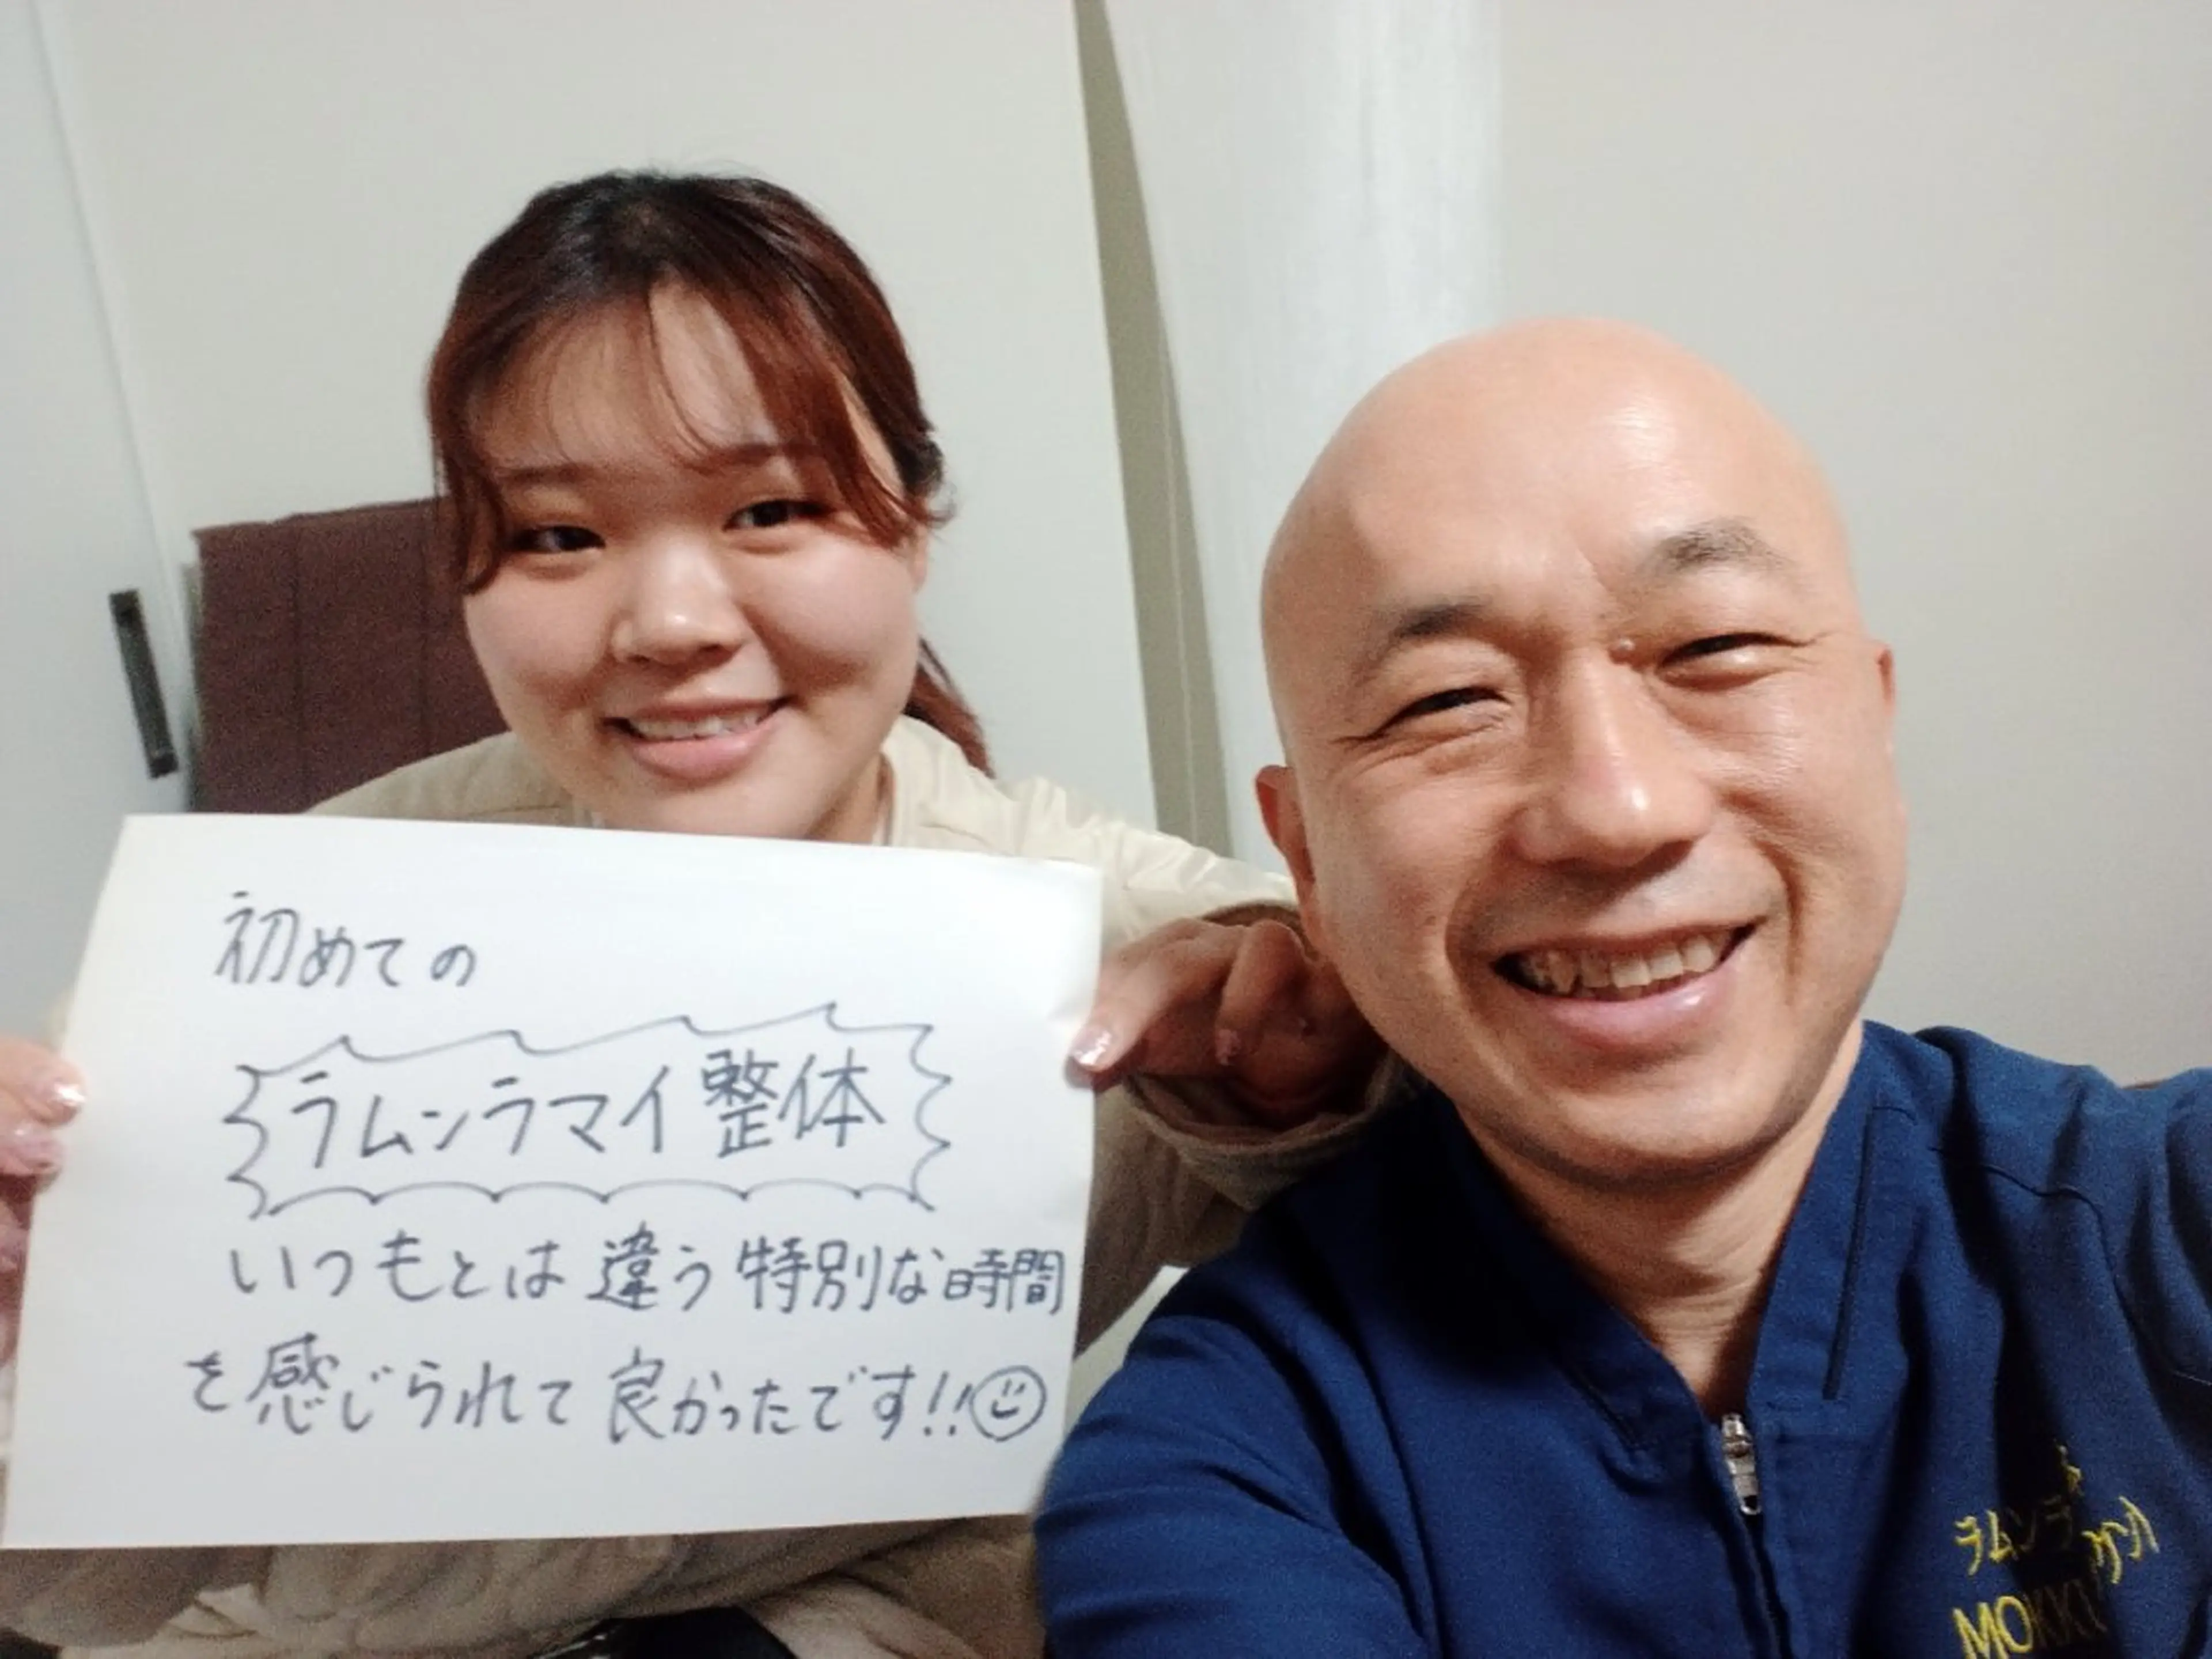 初めての
ラムンラマイ整体
いつもとは違う特別な時間
を感じられて良かったです!!
ラムンラ
MOKK